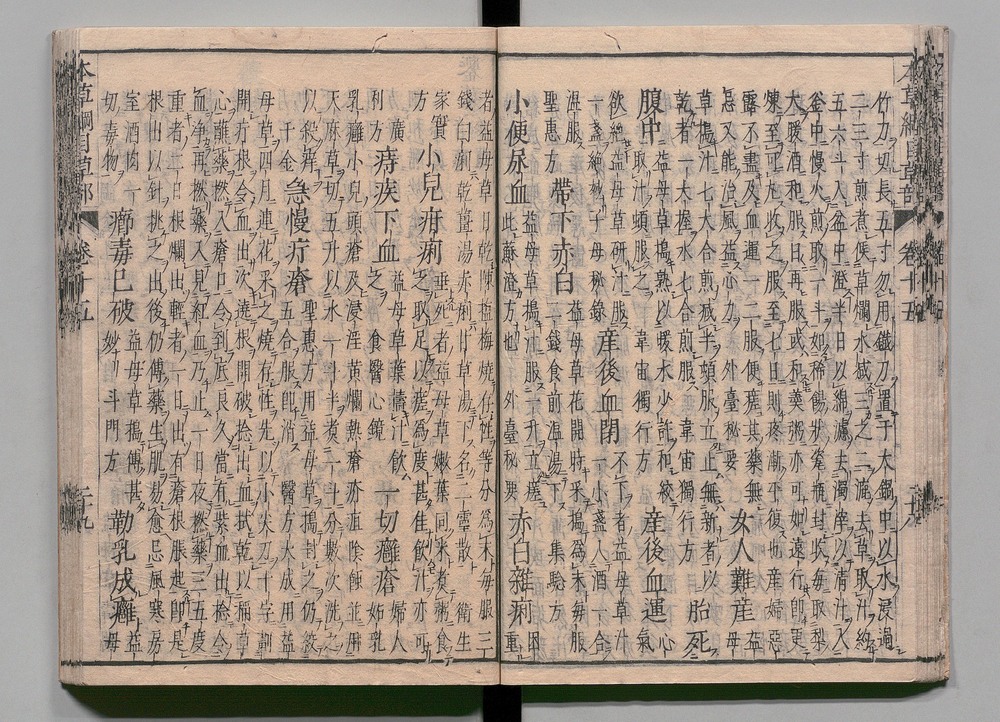 竹刀切長五寸勿用鐵刀置于大鍋中以水浸過
二三寸煎煮候草爛水減三之二漉去草取汁約
五六斗入盆中澄半日以綿濾去濁滓以清汁入
釜中慢火煎取一斗如稀餳狀瓷瓶封收每取梨
大暖酒和服日再服或和羹粥亦可如遠行即更
煉至可丸收之服至七日則疼漸平復也産婦惡
露不盡及血運一二服便瘥其藥無
忌又能治風益心力外臺秘要
女人難産
益母
草搗汁七大合煎減半頓服立止無新者以
乾者一大握水七合煎服韋宙獨行方
胎死
腹中
益母草搗熟以暖水少許和絞
取汁頓服之韋宙獨行方
産後血運
心氣
欲絶益母草研汁服
一盞絶妙子母秘錄
産後血閉
不下者益母草汁
一小盞入酒一合
溫服
聖惠方
帶下赤白
益母草花開時采搗為末每服
二錢食前溫湯下集驗方
小便尿血
益母草搗汁服一升立瘥
此蘇澄方也外臺秘要
赤白雜痢
困重
者益母草日乾陳鹽梅燒存性等分為末每服三
錢白痢乾薑湯赤痢甘草湯名二靈散衛生
家寶方
小兒疳痢
垂死者益母草嫩葉同米煮粥食
之取足以瘥為度甚佳飲汁亦可
廣利方
痔疾下血
益母草葉搗汁飲
之食醫心鏡
一切癰瘡
婦人妬乳
乳癰小兒頭瘡及浸淫黄爛熱瘡疥疽陰蝕並用
天麻草切五升以水一斗半煮一斗分數次洗之
以殺癢千金
急慢疔瘡
聖惠方用益母草搗封之仍絞
五合服即消醫方大成用益
母草四月連花采之燒存性先以小尖刀十字劃
開疔根令血出次遶根開破捻出血拭乾以稻草
心蘸藥撚入瘡口令到底良久當有紫血出捻令
血淨再撚藥入見紅血乃止一日夜撚藥三五度
重者二日根爛出輕者一日出有瘡根脹起即是
根出以針挑之出後仍傅藥生肌易愈忌風寒房
室酒肉一
切毒物
癤毒已破
益母草搗傅甚
妙斗門方
勒乳成癰
益母